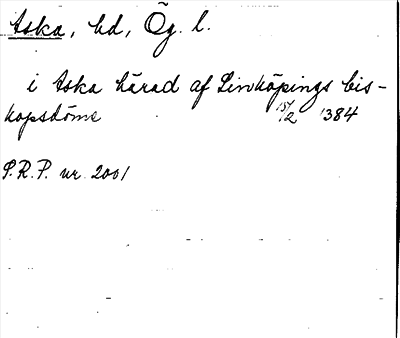 Aska, hd, Ög. l.
i Aska härad af Linköpings bis-
kopsdöme 15/2 1384
S.R.P. nr. 2001